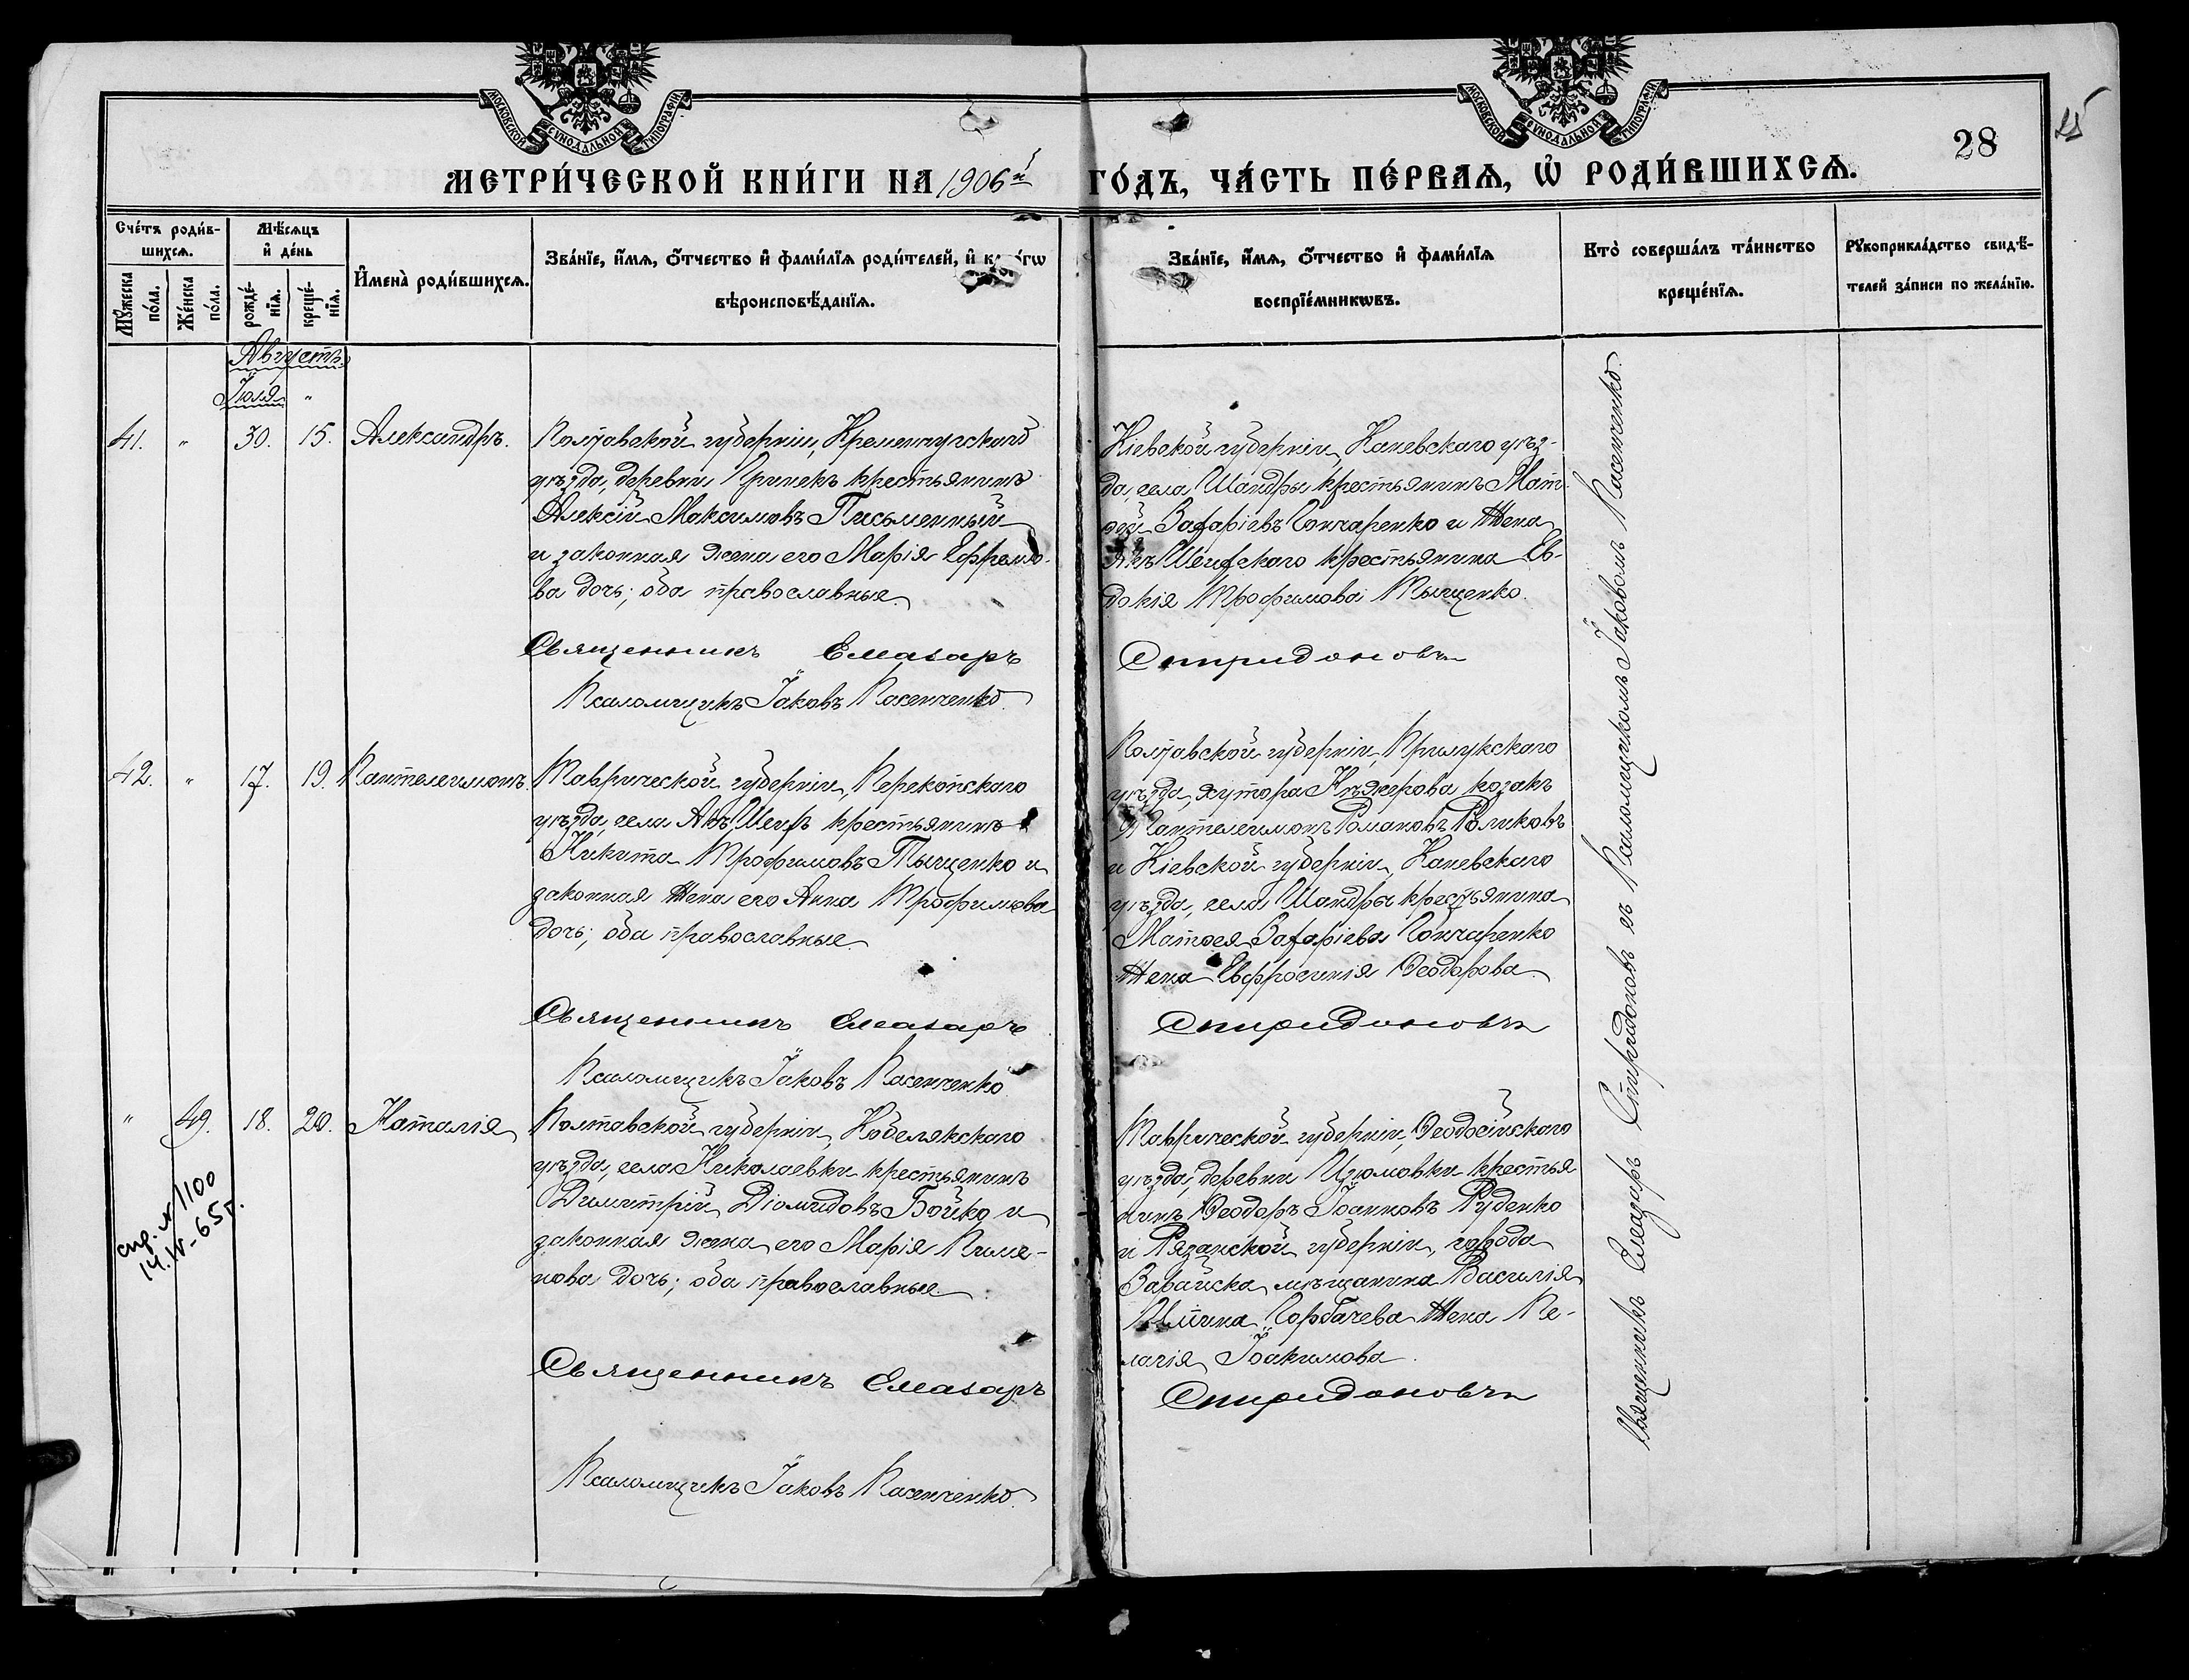 МОСКОВСКОЙ СУНОДАЛЬНОЙ ТИПОГРАФІИ
МОСКОВСКОЙ СУНОДАЛЬНОЙ ТИПОГРАФІИ
28
МЕТРИ́ЧЕСКОЙ КНИ́ГИ НА 1906й ГО́ДЪ, ЧА́СТЬ ПЕ́РВАѦ, Ѡ҆ РОДИ́ВШИХСѦ.
Сче́тъ роди́в-
шихсѧ.
Мꙋ́жеска по́ла.
Же́нска по́ла.
Мѣ́сѧцъ
и҆ де́нь
рожде́-
нїѧ.
креще́-
нїѧ.
И҆мена̀ роди́вшихсѧ.
Зва́нїе, и҆́мѧ, ѻ҆́тчество и҆ фами́лїѧ роди́телей, и҆
вѣроисповѣ́данїѧ.
Зва́нїе, и҆́мѧ, ѻ҆́тчество и҆ фами́лїѧ
воспрїе́мникѡвъ.
Кто̀ соверша́лъ та́инство
креще́нїѧ.
Рꙋкоприкла́дство свидѣ́-
телей за́писи по жела́нїю.
Августъ
Іюля "
41. " 30. 15. Александръ.
Полтавской губерніи, Кременчугскаго
уѣзда, деревни Пришекъ крестьянинъ
Алексій Максимовъ Письменный
и законная жена его Марія Ефремо-
ва дочь; оба православные.
Священникъ Елеазаръ
Псаломщикъ Іаковъ
Кіевской губерніи, Каневскаго уѣз-
да, села Шандры крестьянинъ Мат-
ѳей Захаріевъ Гончаренко и Жена
Акъ Шеихскаго крестьянина Ев-
докія Трофимова Тыщенко.
Спиридоновъ
42. " 17. 19. Пантелеимонъ.
Таврической губерніи, Перекопскаго
уѣзда, села Акъ Шеихъ крестьянинъ
Никита Трофимовъ Тыщенко и
законная Жена его Анна Трофимова
дочь; оба православные.
Священникъ Елеазаръ
Псаломщикъ Іаковъ
Полтавской губерніи, Прилукскаго
уѣзда, хутора козакъ
Пантелеимонъ Романовъ
и Кіевской губерніи, Каневскаго
уѣзда, села Шандры крестьянина
Матѳея Захаріева Гончаренко
Жена Евфросинія Ѳеодорова.
Спиридоновъ
" 49. 18. 20. Наталія
Полтавской губерніи, Кобелякскаго
уѣзда, села Николаевки крестьянинъ
Димитрій Діомидовъ Бойко и
законная жена его Марія Пиме-
нова дочь; оба православные.
Священникъ Елеазаръ
Псаломщикъ Іаковъ
Таврической губерніи, Ѳеодосійскаго
уѣзда, деревни Изюмовки крестья
нинъ Ѳеодоръ Іоанновъ Руденко
и Рязанской губерніи, города
Зарайска мѣщанина Василія
Ильина Горбачева Жена Пе-
лагія Іоакимова.
Спиридоновъ
спр. № 1100
14.IV-65г.
Священникъ Елеазаръ Спиридоновъ съ Псаломщикомъ Іаковомъ